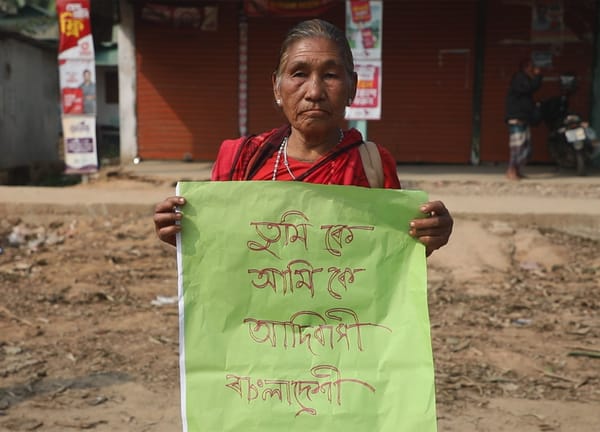 ফ্রি
তুমি কে
আমি কে
আদিবাসী
বাংলাদেশী